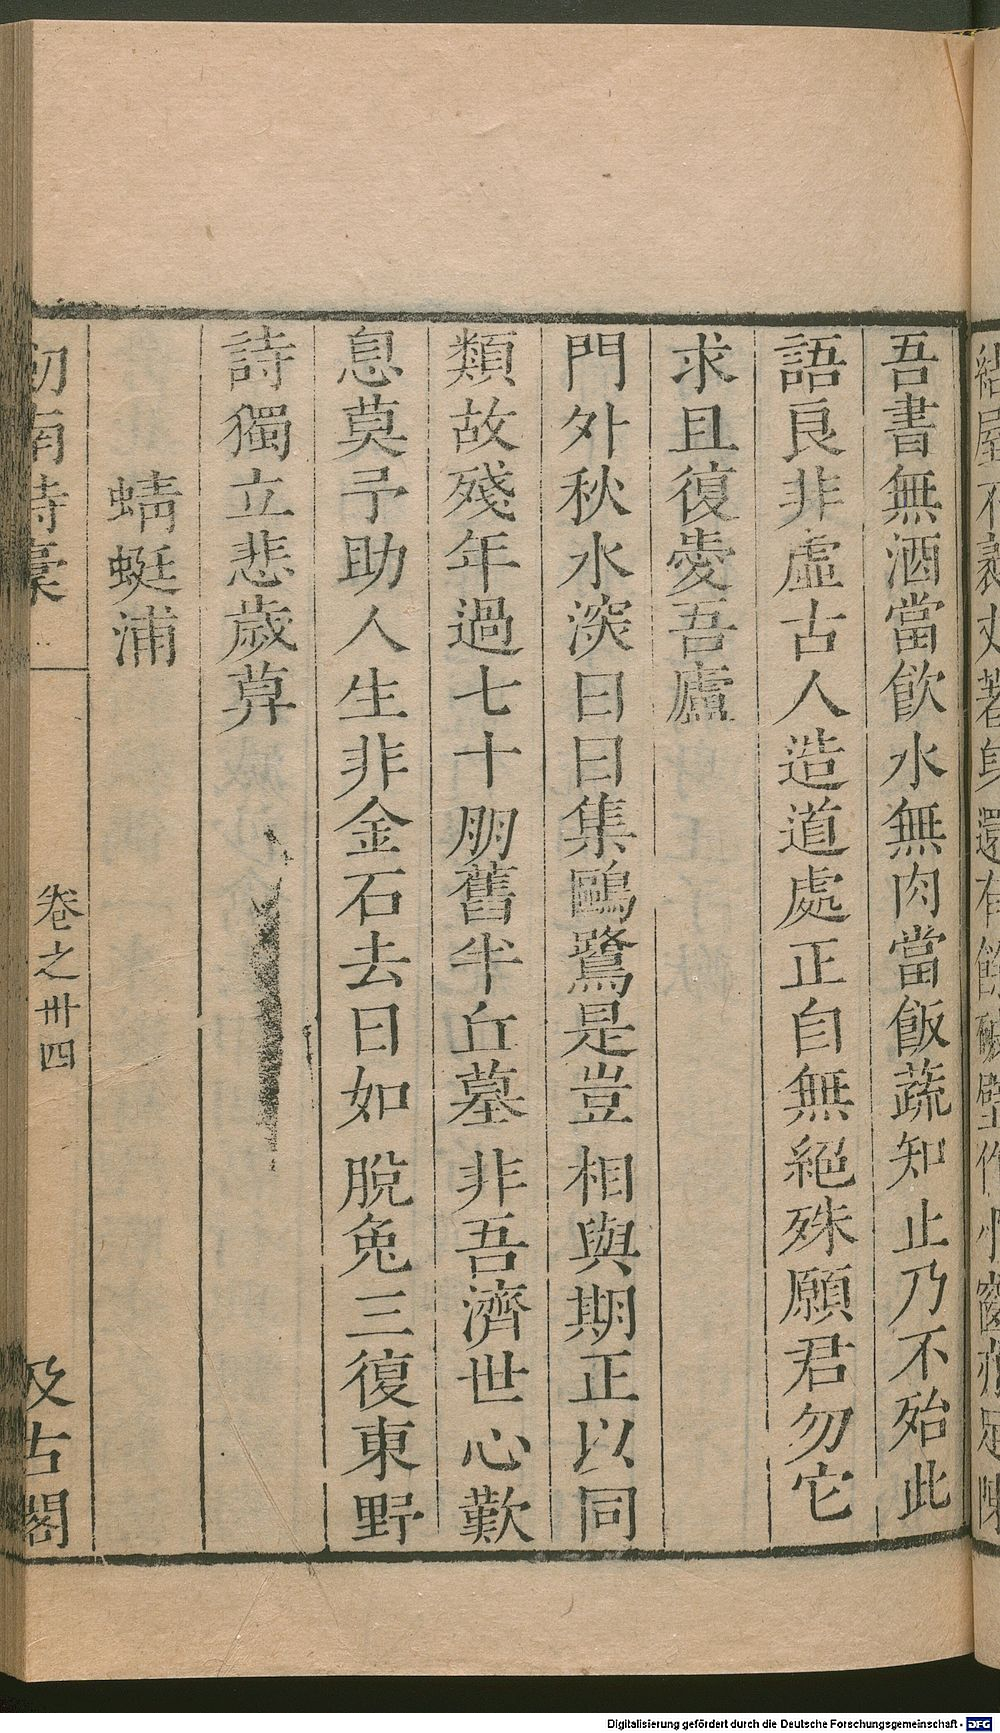 吾書無酒當飲水無肉當飯蔬知止乃不殆此
語良非虛古人造道處正自無絕殊願君勿它
求且復愛吾廬
門外秋水深日日集鷗鷺是豈相與期正以同
類故殘年過七十朋舊半丘墓非吾濟世心歎
息莫予助人生非金石去日如脫兔三復東野
詩獨立悲歲莫
蜻蜓浦
劒南詩稾
卷之卅四
汲古閣
Digitalisierung gefördert durch die Deutsche Forschungsgemeinschaft - DFG